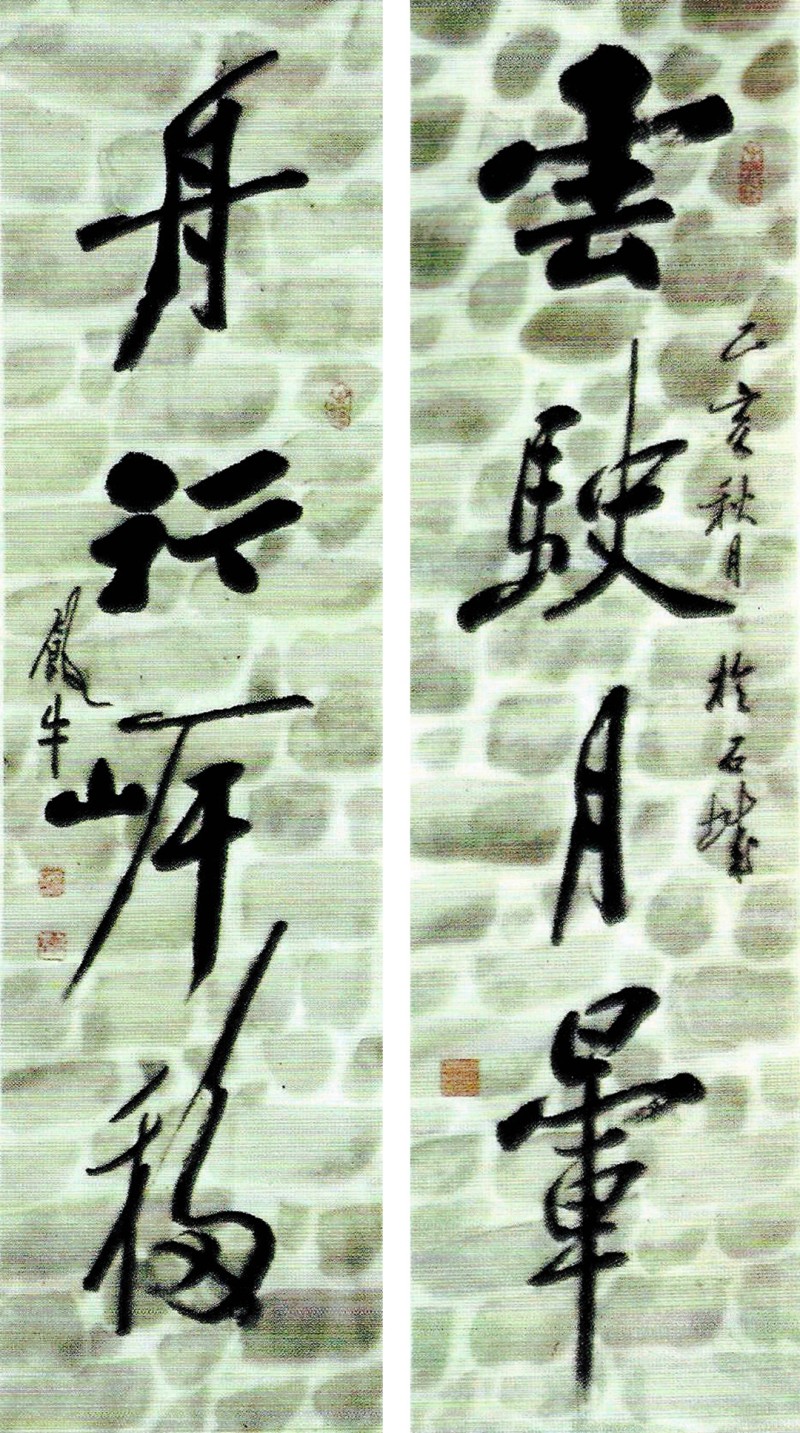 雲駛月暈
乙亥秋月 於石城
舟行岸移
牛